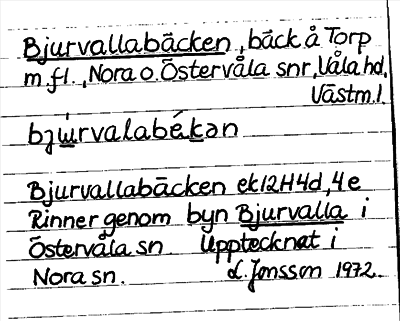 Bjurvallabäcken, bäck å Torp
m.fl., Nora o. Östervåla snr, Våla hd,
Västm.l.
bjúrvalabékən
Bjurvallabäcken ek12H4d,4e
Rinner genom byn Bjurvalla i
Östervåla sn. Upptecknat i
Nora sn. L. Jonsson 1972.